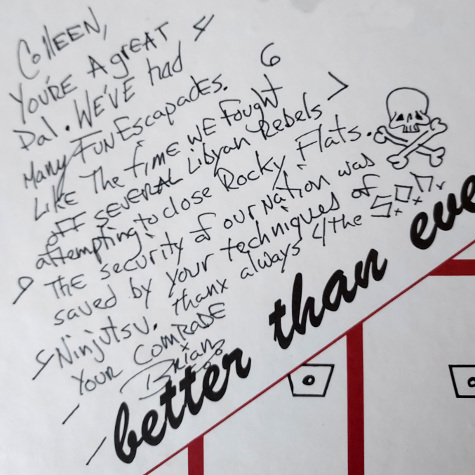 Colleen,
You're A great
Pal. We've had
Many Fun Escapades. 6
Like The time we fought
off several Libyan Rebels
attempting to close Rocky Flats.
The security of our nation was
saved by your techniques of
Ninjutsu. thanx always 4 the
Your Comrade
Brian
better than eve